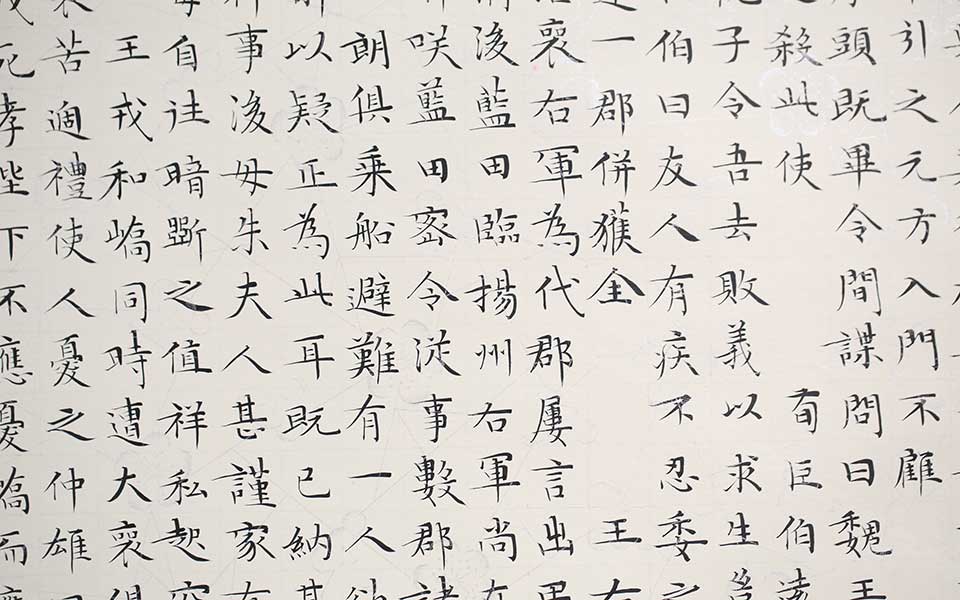 引之元方入門不顧
頭既畢令間諜問曰魏王
殺此使
荀巨伯遠
子令吾去敗義以求生豈
伯曰友人有疾不忍委之
一郡併獲全
王右
裒右軍為代郡屢言出
後藍田臨揚州右軍尚在
咲藍田密令從事數郡諸
朗俱乘船避難有一人欲
以疑正為此耳既已納其
事後母朱夫人甚謹家有
自往暗斲之值祥私起空
王戎和嶠同時遭大喪俱
苦過禮使人憂之仲雄曰
死孝陛下不應憂嶠而應